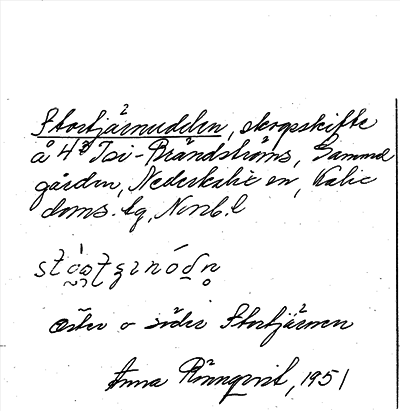 Stortjärnudden, skogsskifte
å 4² Isi-Brändströms, Gammel
gården, Nederkalix en, Kalix
doms. lg, Nrrb. l
öster o söder Stortjärnen
Anna Rönnqvist, 1951